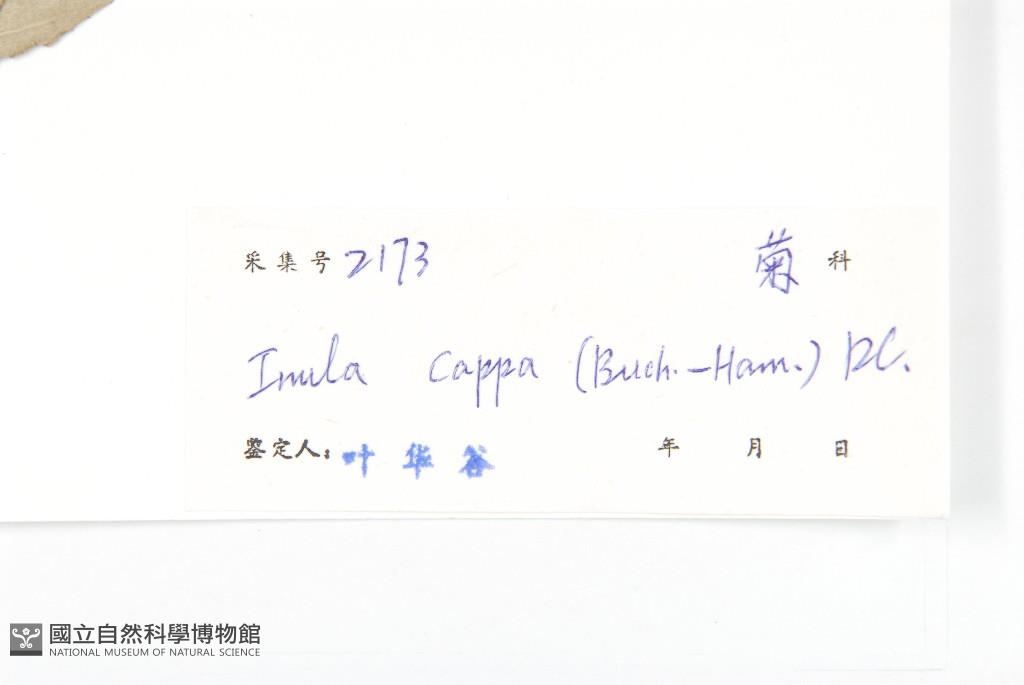 采集号 2173 菊 科
Inula Cappa (Buch.-Ham.) DC.
鉴定人: 叶华谷 年 月 日
國立自然科學博物館
NATIONAL MUSEUM OF NATURAL SCIENCE